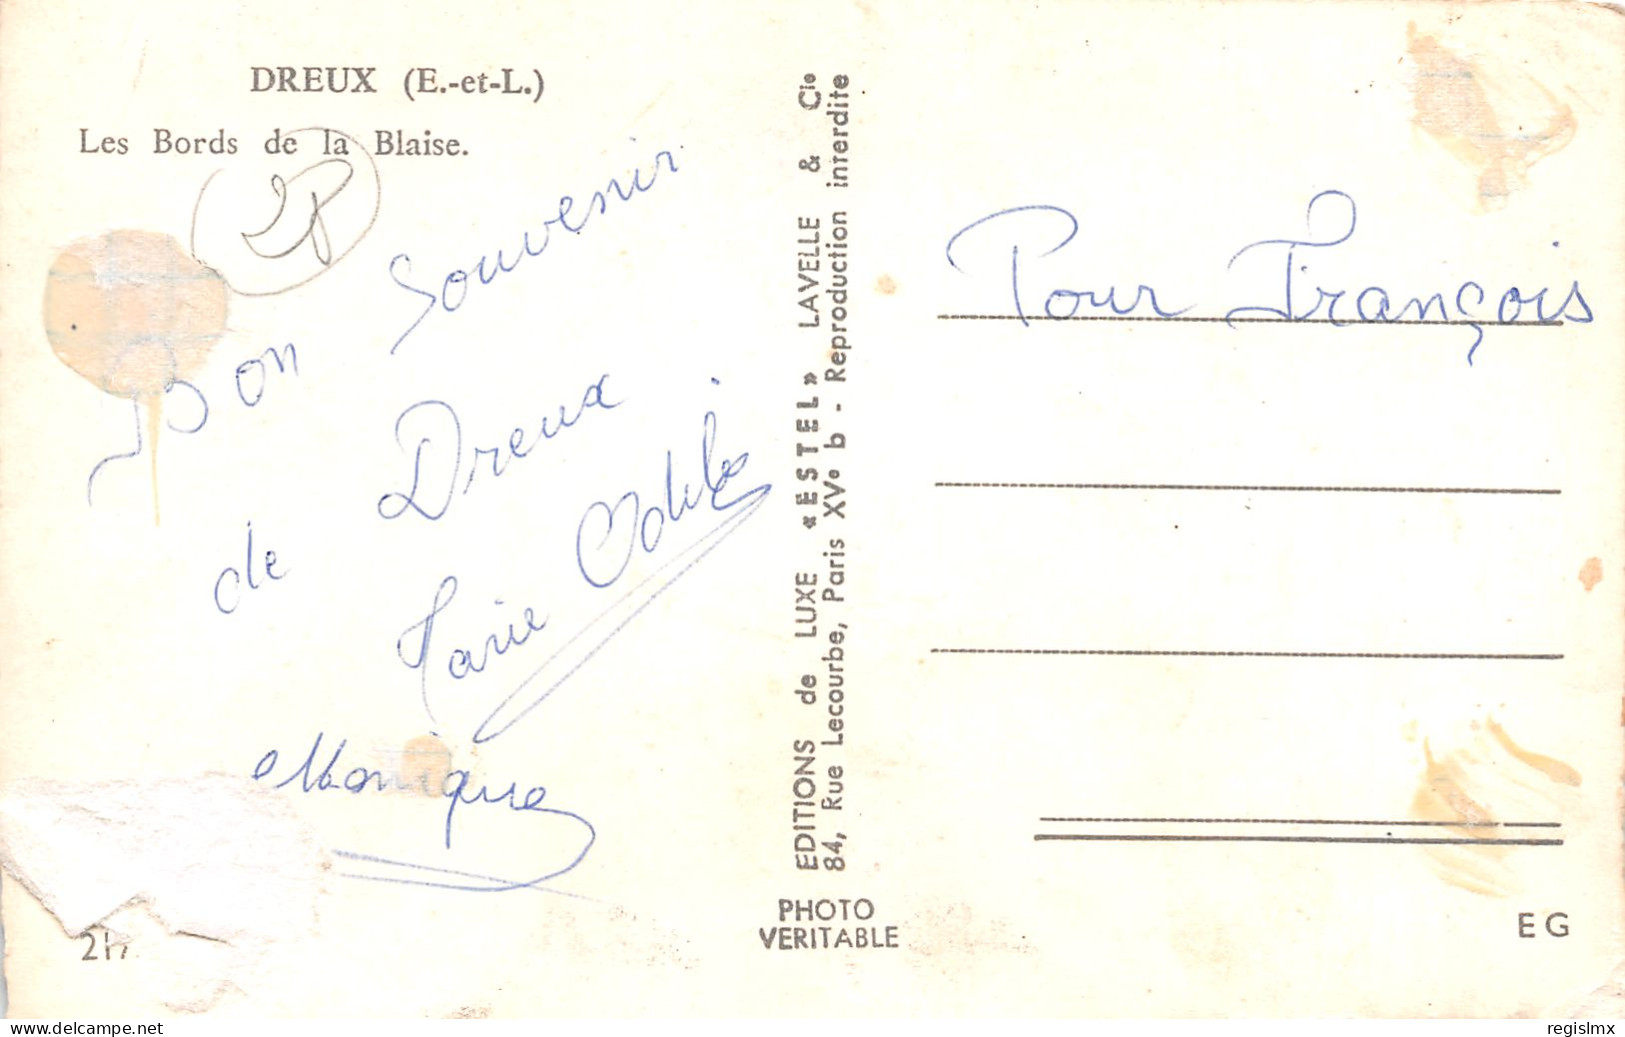 DREUX (E.-et-L.)
Les Bords de la Blaise.
Bon souvenir
de Dreux
Marie Odile
Monique
EDITIONS de LUXE «ESTEL» LAVELLE & Cie
84, Rue Lecourbe, Paris XVe b - Reproduction interdite
PHOTO
VERITABLE
Pour François
E G
delcampe.net
regislmx